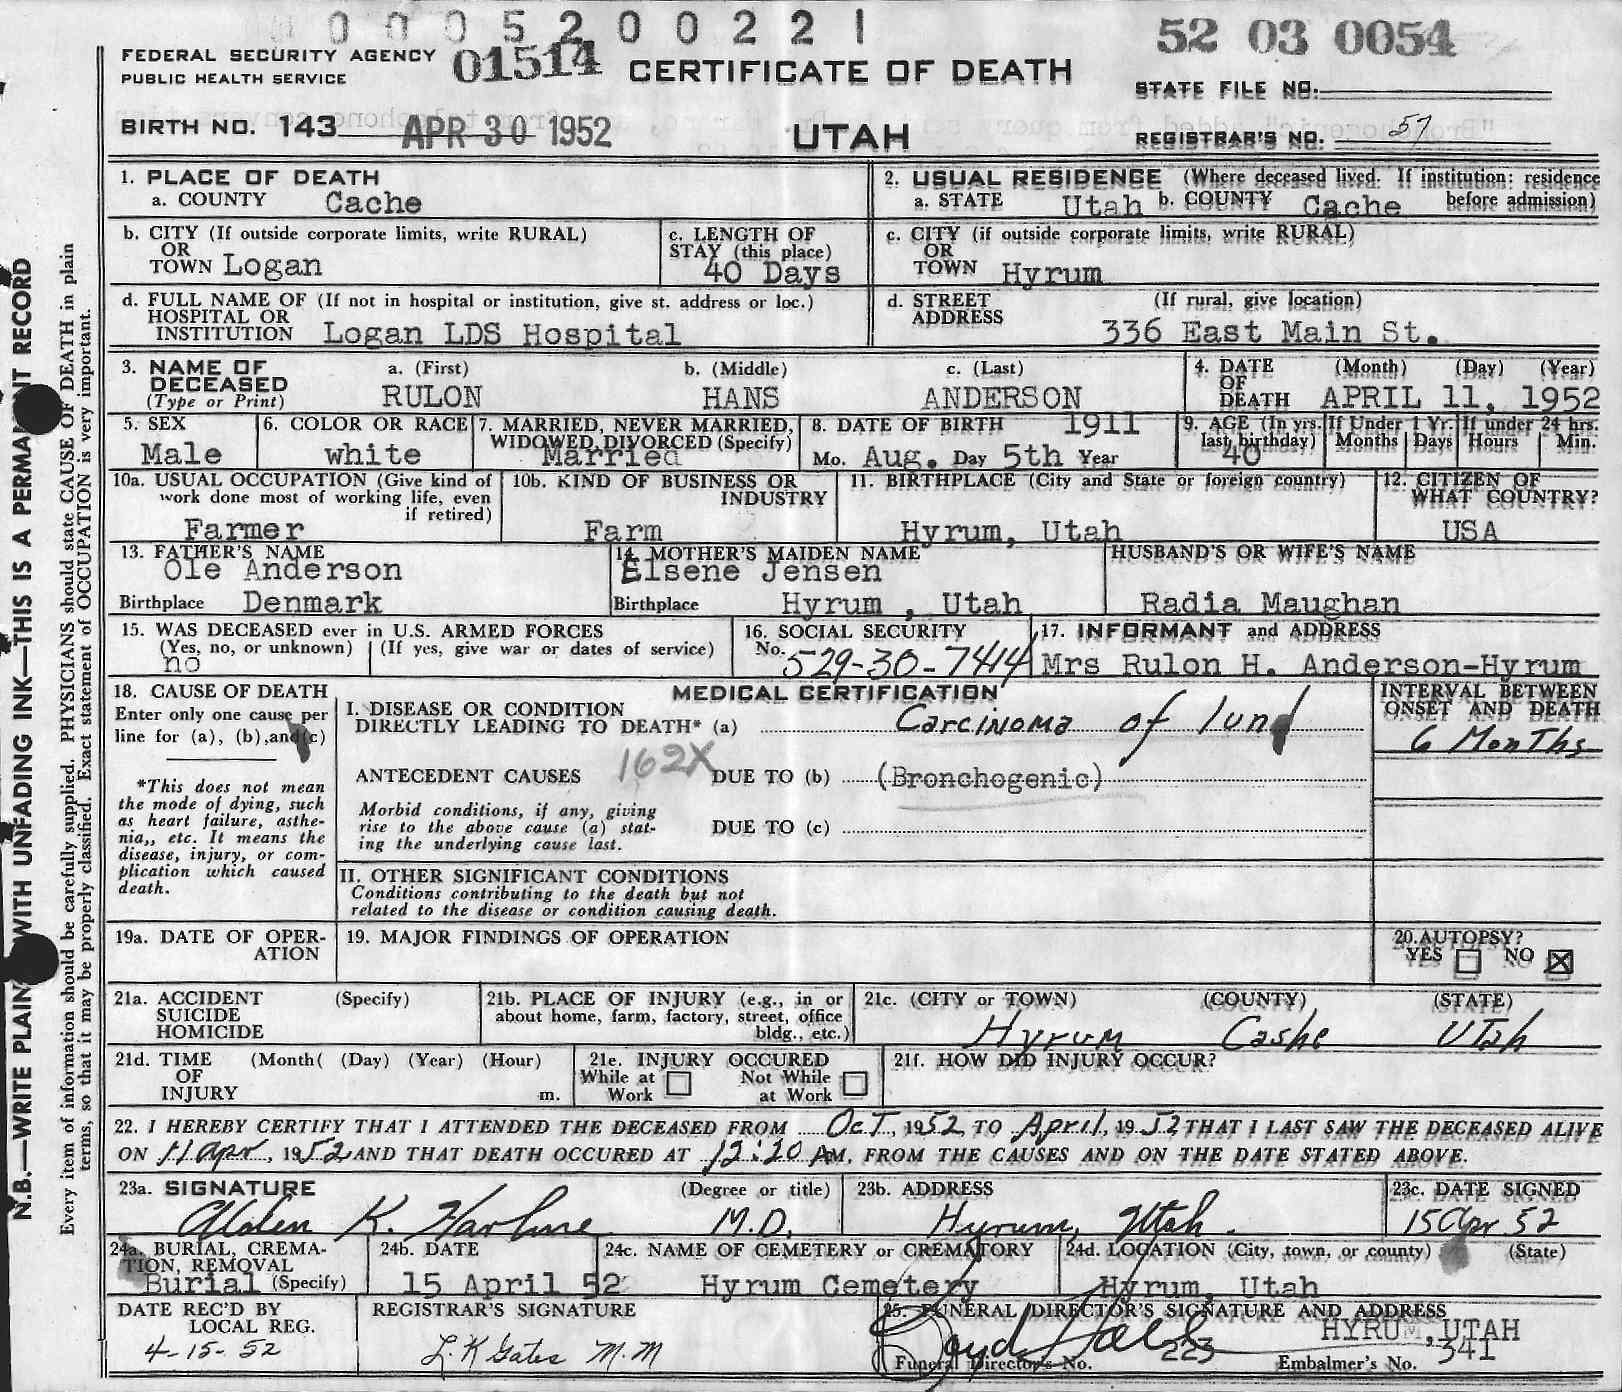 0 0 0 5 2 0 0 2 2 1
52 03 0054
FEDERAL SECURITY AGENCY
PUBLIC HEALTH SERVICE
01514
CERTIFICATE OF DEATH
STATE FILE NO.
BIRTH NO. 143
APR 30 1952
UTAH
REGISTRAR'S NO. 57
N.B.—WRITE PLAIN WITH UNFADING INK—THIS IS A PERMANENT RECORD
Every item of information should be carefully supplied. PHYSICIANS should state CAUSE OF DEATH in plain
terms, so that it may be properly classified. Exact statement of OCCUPATION is very important.
1. PLACE OF DEATH
a. COUNTY Cache
2. USUAL RESIDENCE (Where deceased lived. If institution: residence
a. STATE Utah b. COUNTY Cache before admission)
b. CITY (If outside corporate limits, write RURAL)
OR
TOWN Logan
c. LENGTH OF
STAY (this place)
40 Days
c. CITY (if outside corporate limits, write RURAL)
OR
TOWN Hyrum
d. FULL NAME OF (If not in hospital or institution, give st. address or loc.)
HOSPITAL OR
INSTITUTION Logan LDS Hospital
d. STREET (If rural, give location)
ADDRESS
336 East Main St.
3. NAME OF
DECEASED
(Type or Print)
a. (First)
RULON
b. (Middle)
HANS
c. (Last)
ANDERSON
4. DATE (Month) (Day) (Year)
OF
DEATH APRIL 11, 1952
5. SEX
Male
6. COLOR OR RACE
white
7. MARRIED, NEVER MARRIED,
WIDOWED, DIVORCED (Specify)
Married
8. DATE OF BIRTH 1911
Mo. Aug. Day 5th Year
9. AGE (In yrs.
last birthday)
40
If Under 1 Yr.
Months Days
If under 24 hrs.
Hours Min.
10a. USUAL OCCUPATION (Give kind of
work done most of working life, even
if retired)
Farmer
10b. KIND OF BUSINESS OR
INDUSTRY
Farm
11. BIRTHPLACE (City and State or foreign country)
Hyrum, Utah
12. CITIZEN OF
WHAT COUNTRY?
USA
13. FATHER'S NAME
Ole Anderson
Birthplace Denmark
14. MOTHER'S MAIDEN NAME
Elsene Jensen
Birthplace Hyrum , Utah
HUSBAND'S OR WIFE'S NAME
Radia Maughan
15. WAS DECEASED ever in U.S. ARMED FORCES
(Yes, no, or unknown) (If yes, give war or dates of service)
no
16. SOCIAL SECURITY
No. 529-30-7414
17. INFORMANT and ADDRESS
Mrs Rulon H. Anderson-Hyrum
18. CAUSE OF DEATH
Enter only one cause per
line for (a), (b), and (c)
*This does not mean
the mode of dying, such
as heart failure, asthe-
nia,, etc. It means the
disease, injury, or com-
plication which caused
death.
MEDICAL CERTIFICATION
I. DISEASE OR CONDITION
DIRECTLY LEADING TO DEATH* (a) Carcinoma of lung
162X
ANTECEDENT CAUSES DUE TO (b) (Bronchogenic)
Morbid conditions, if any, giving
rise to the above cause (a) stat-
ing the underlying cause last.
DUE TO (c)
INTERVAL BETWEEN
ONSET AND DEATH
6 Months
II. OTHER SIGNIFICANT CONDITIONS
Conditions contributing to the death but not
related to the disease or condition causing death.
19a. DATE OF OPER-
ATION
19. MAJOR FINDINGS OF OPERATION
20. AUTOPSY?
YES NO X
21a. ACCIDENT (Specify)
SUICIDE
HOMICIDE
21b. PLACE OF INJURY (e.g., in or
about home, farm, factory, street, office
bldg., etc.)
21c. (CITY or TOWN) (COUNTY) (STATE)
Hyrum Cashe Utah
21d. TIME (Month( (Day) (Year) (Hour)
OF
INJURY m.
21e. INJURY OCCURED
While at Not While
Work at Work
21f. HOW DID INJURY OCCUR?
22. I HEREBY CERTIFY THAT I ATTENDED THE DECEASED FROM Oct, 1952 TO April, 1952, THAT I LAST SAW THE DECEASED ALIVE
ON 11 apr, 1952 AND THAT DEATH OCCURED AT 12:20 AM, FROM THE CAUSES AND ON THE DATE STATED ABOVE.
23a. SIGNATURE (Degree or title)
Alden K. Harline M.D.
23b. ADDRESS
Hyrum, Utah.
23c. DATE SIGNED
15 Apr 52
24a. BURIAL, CREMA-
TION, REMOVAL
Burial (Specify)
24b. DATE
15 April 52
24c. NAME OF CEMETERY or CREMATORY
Hyrum Cemetery
24d. LOCATION (City, town, or county) (State)
Hyrum, Utah
DATE REC'D BY
LOCAL REG.
4-15-52
REGISTRAR'S SIGNATURE
L.K Gates M.M
25. FUNERAL DIRECTOR'S SIGNATURE AND ADDRESS
HYRUM, UTAH
Funeral Director's No. 223 Embalmer's No. 341